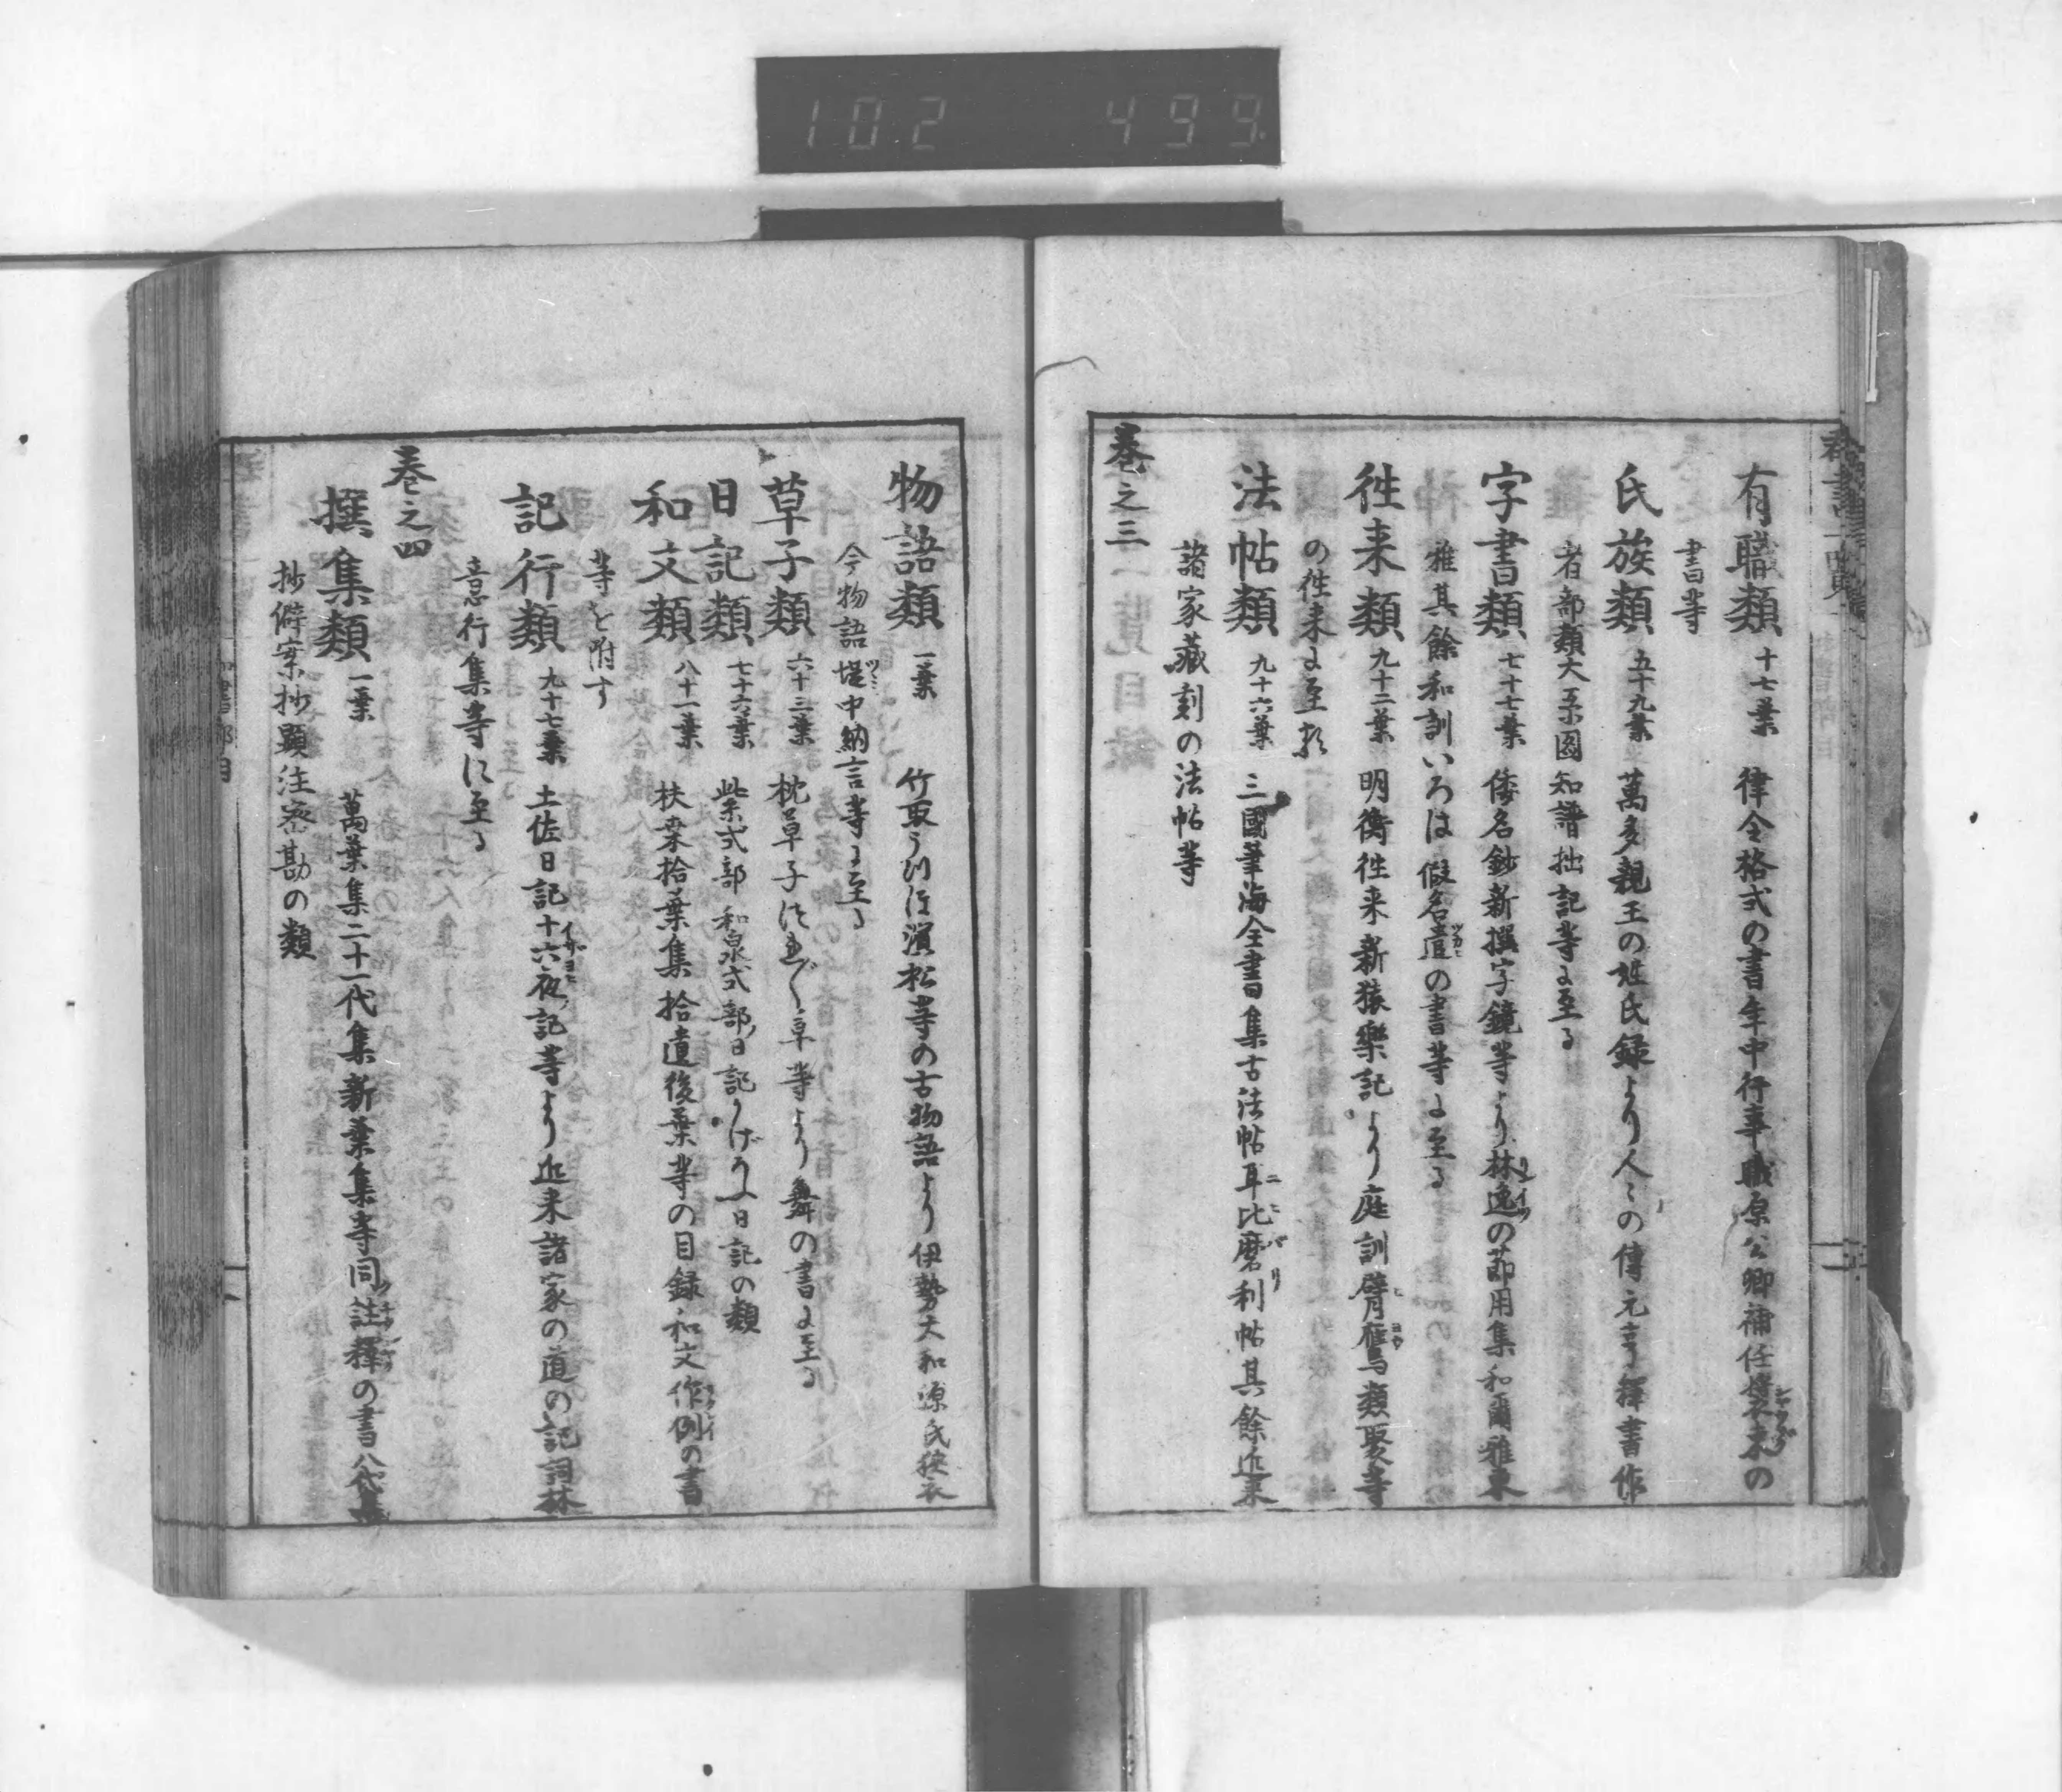 102 499
有職類 十七葉 律令格式の書年中行事職原公卿補任装束の
書等
氏族類 五十九葉 萬多親王の姓氏録より人々の傳元亨釋書作
者部類大系図知譜拙記等に至る
字書類 七十七葉 倭名鈔新撰字鏡等より林逸の節用集和爾雅東
雅其餘和訓いろは假名遣の書等に至る
徃来類 九十二葉 明衡徃来新猿樂記より庭訓臂鷹類聚等
の徃来に至
法帖類 九十六葉 三國筆海全書集古法帖耳比磨利帖其餘近来
諸家藏刻の法帖等
巻之三
物語類 一葉 竹取うつほ濵松等の古物語より伊勢大和源氏狭衣
今物語堤中納言等に至る
草子類 六十三葉 枕草子つれ〴〵草等より舞の書に至る
日記類 七十六葉 紫式部和泉式部日記かげろふ日記の類
和文類 八十一葉 扶桒拾葉集拾遺後葉等の目録和文作例の書
等を附す
記行類 九十七葉 土佐日記十六夜記等より近来諸家の道の記詞林
意行集等に至る
巻之四
撰集類 一葉 萬葉集二十一代集新葉集等同註釋の書八代集
抄僻案抄顕注密勘の類